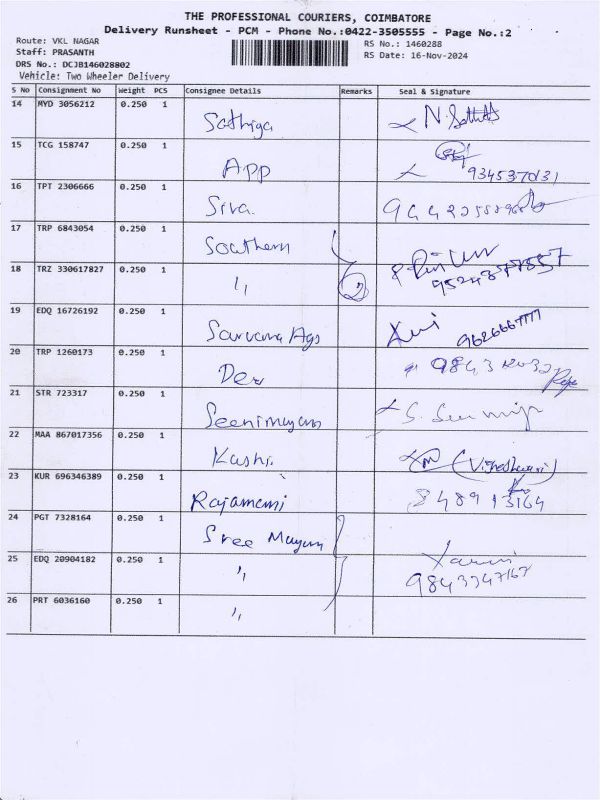 THE PROFESSIONAL COURIERS, COIMBATORE
Delivery Runsheet - PCM - Phone No.:0422-3505555 - Page No.:2
Route: VKL NAGAR
RS No.: 1460288
Staff: PRASANTH
RS Date: 16-Nov-2024
DRS No.: DCJB146028802
Vehicle: Two Wheeler Delivery
S No Consignment No Weight PCS Consignee Details Remarks Seal & Signature
14 MYD 3056212 0.250 1 Sathiya
15 TCG 158747 0.250 1 App
16 TPT 2306666 0.250 1 Siva.
17 TRP 6843054 0.250 1 Southern
18 TRZ 330617827 0.250 1 ,, 2
19 EDQ 16726192 0.250 1 Sarvana Ags
20 TRP 1260173 0.250 1 Dev
21 STR 723317 0.250 1 Seenimayam
22 MAA 867017356 0.250 1 Kashi.
23 KUR 696346389 0.250 1 Rajamani 8489 13164
24 PGT 7328164 0.250 1 Sree Mayam
25 EDQ 20904182 0.250 1 ,, 9843347167
26 PRT 6036160 0.250 1 ,,